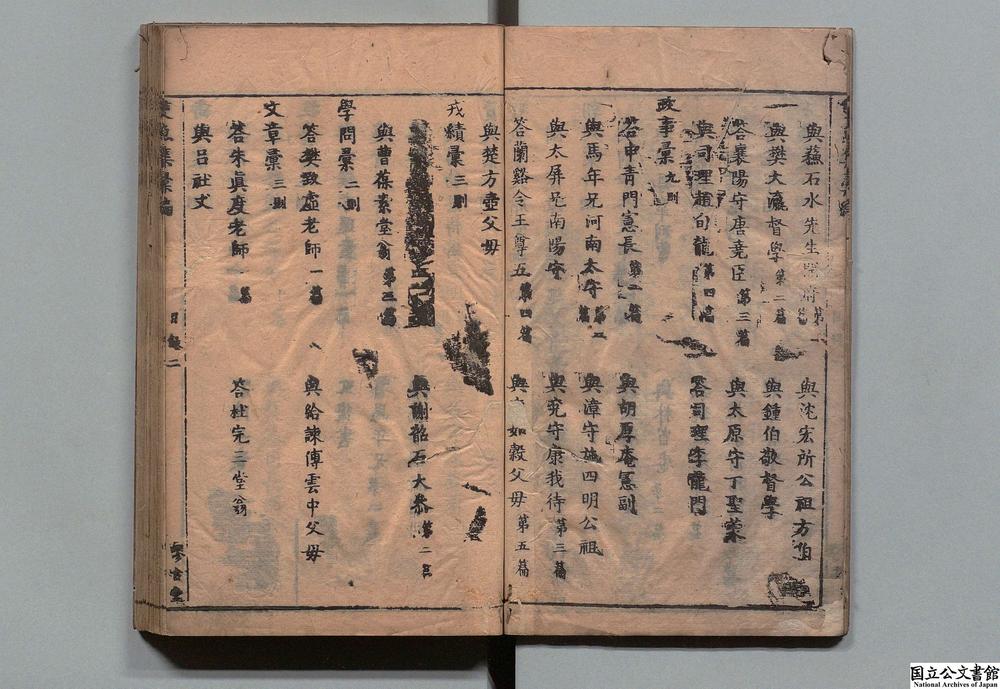 與蘓石水先生
與沈宏所公祖方伯
與樊大瀛督學 第二篇
與鍾伯敬督學
答襄陽守唐堯臣 第三篇
與太原守丁聖
與司理趙旬龍 第四篇
答司理李龍門
政事彚 九則
答中青門憲長 第一篇
與胡厚庵憲副
與馬年兄河南太守 第二篇
與漳守施四明公祖
與太屏兄南陽守
與兖守康我待 第三篇
答蘭谿令王尊五 第四篇
與 如穀父毋 第五篇
與楚方壺父毋
戎績彚 三則
與謝韶石大叅 第二
與曹葆素堂翁 第三篇
學問彚 二則
答樊致虛老師 一篇
與給諫傅雲中父毋
文章彚 三則
答朱真度老師 一篇
答杜完三堂翁
與呂社丈
目錄二
國立公文書館
National Archives of Japan